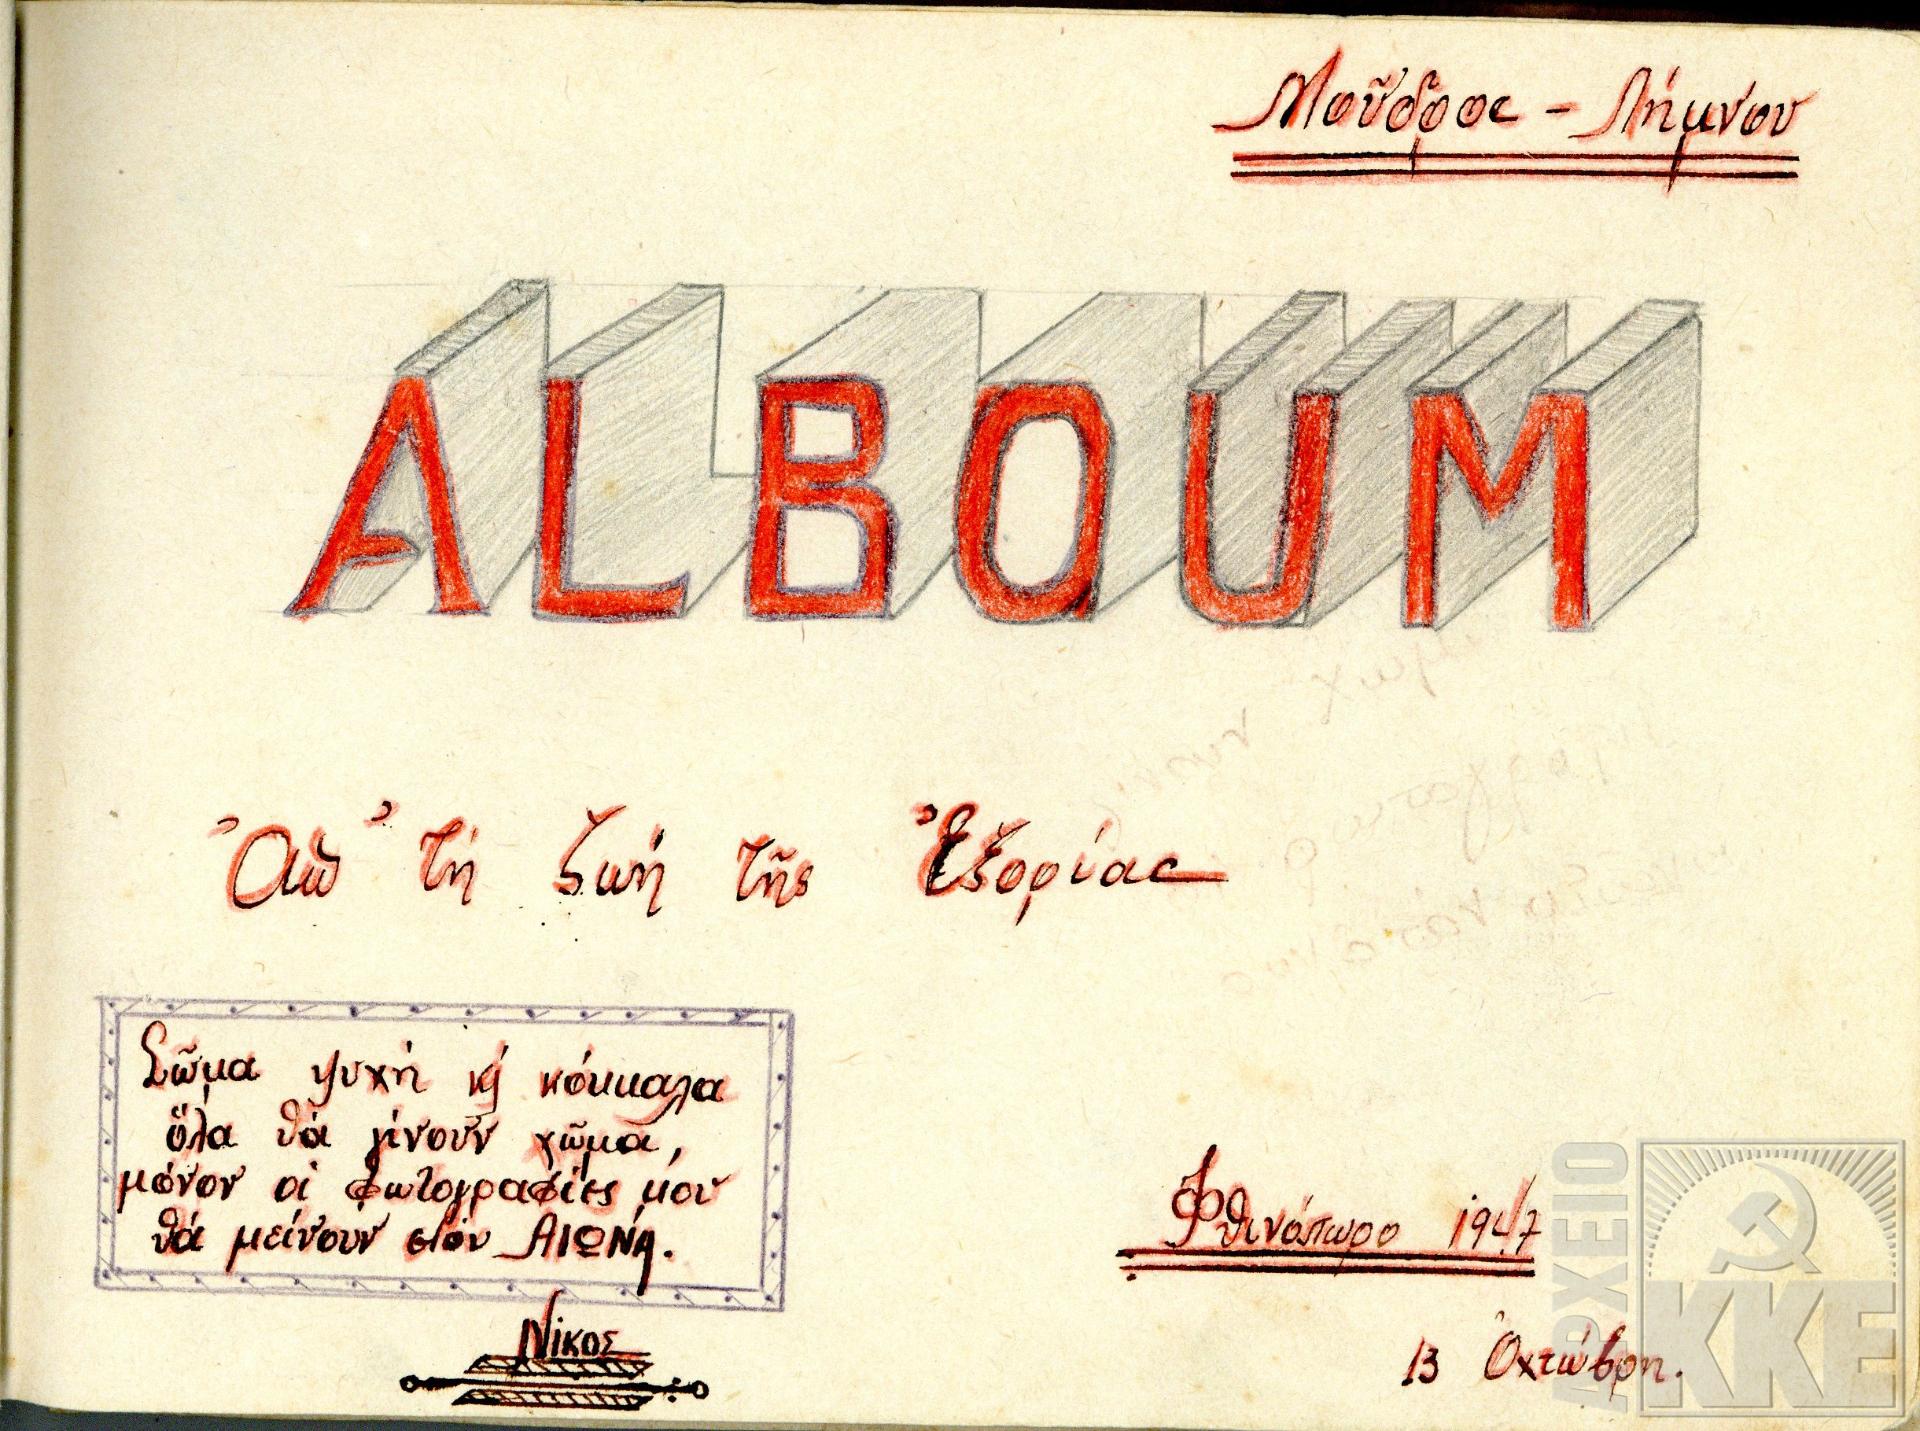 Μοῦδρος - Λήμνου
ALBOUM
Ἀπ' τή ζωή τῆς Ἐξορίας
Σῶμα ψυχή κ' κόκκαλα
ὅλα θά γίνουν χῶμα,
μόνον οἱ φωτογραφίες μου
θά μείνουν στόν ΑΙΩΝΑ.
Νίκος
Φθινόπωρο 1947
13 Ὀχτώβρη.
ΑΡΧΕΙΟ
ΚΚΕ